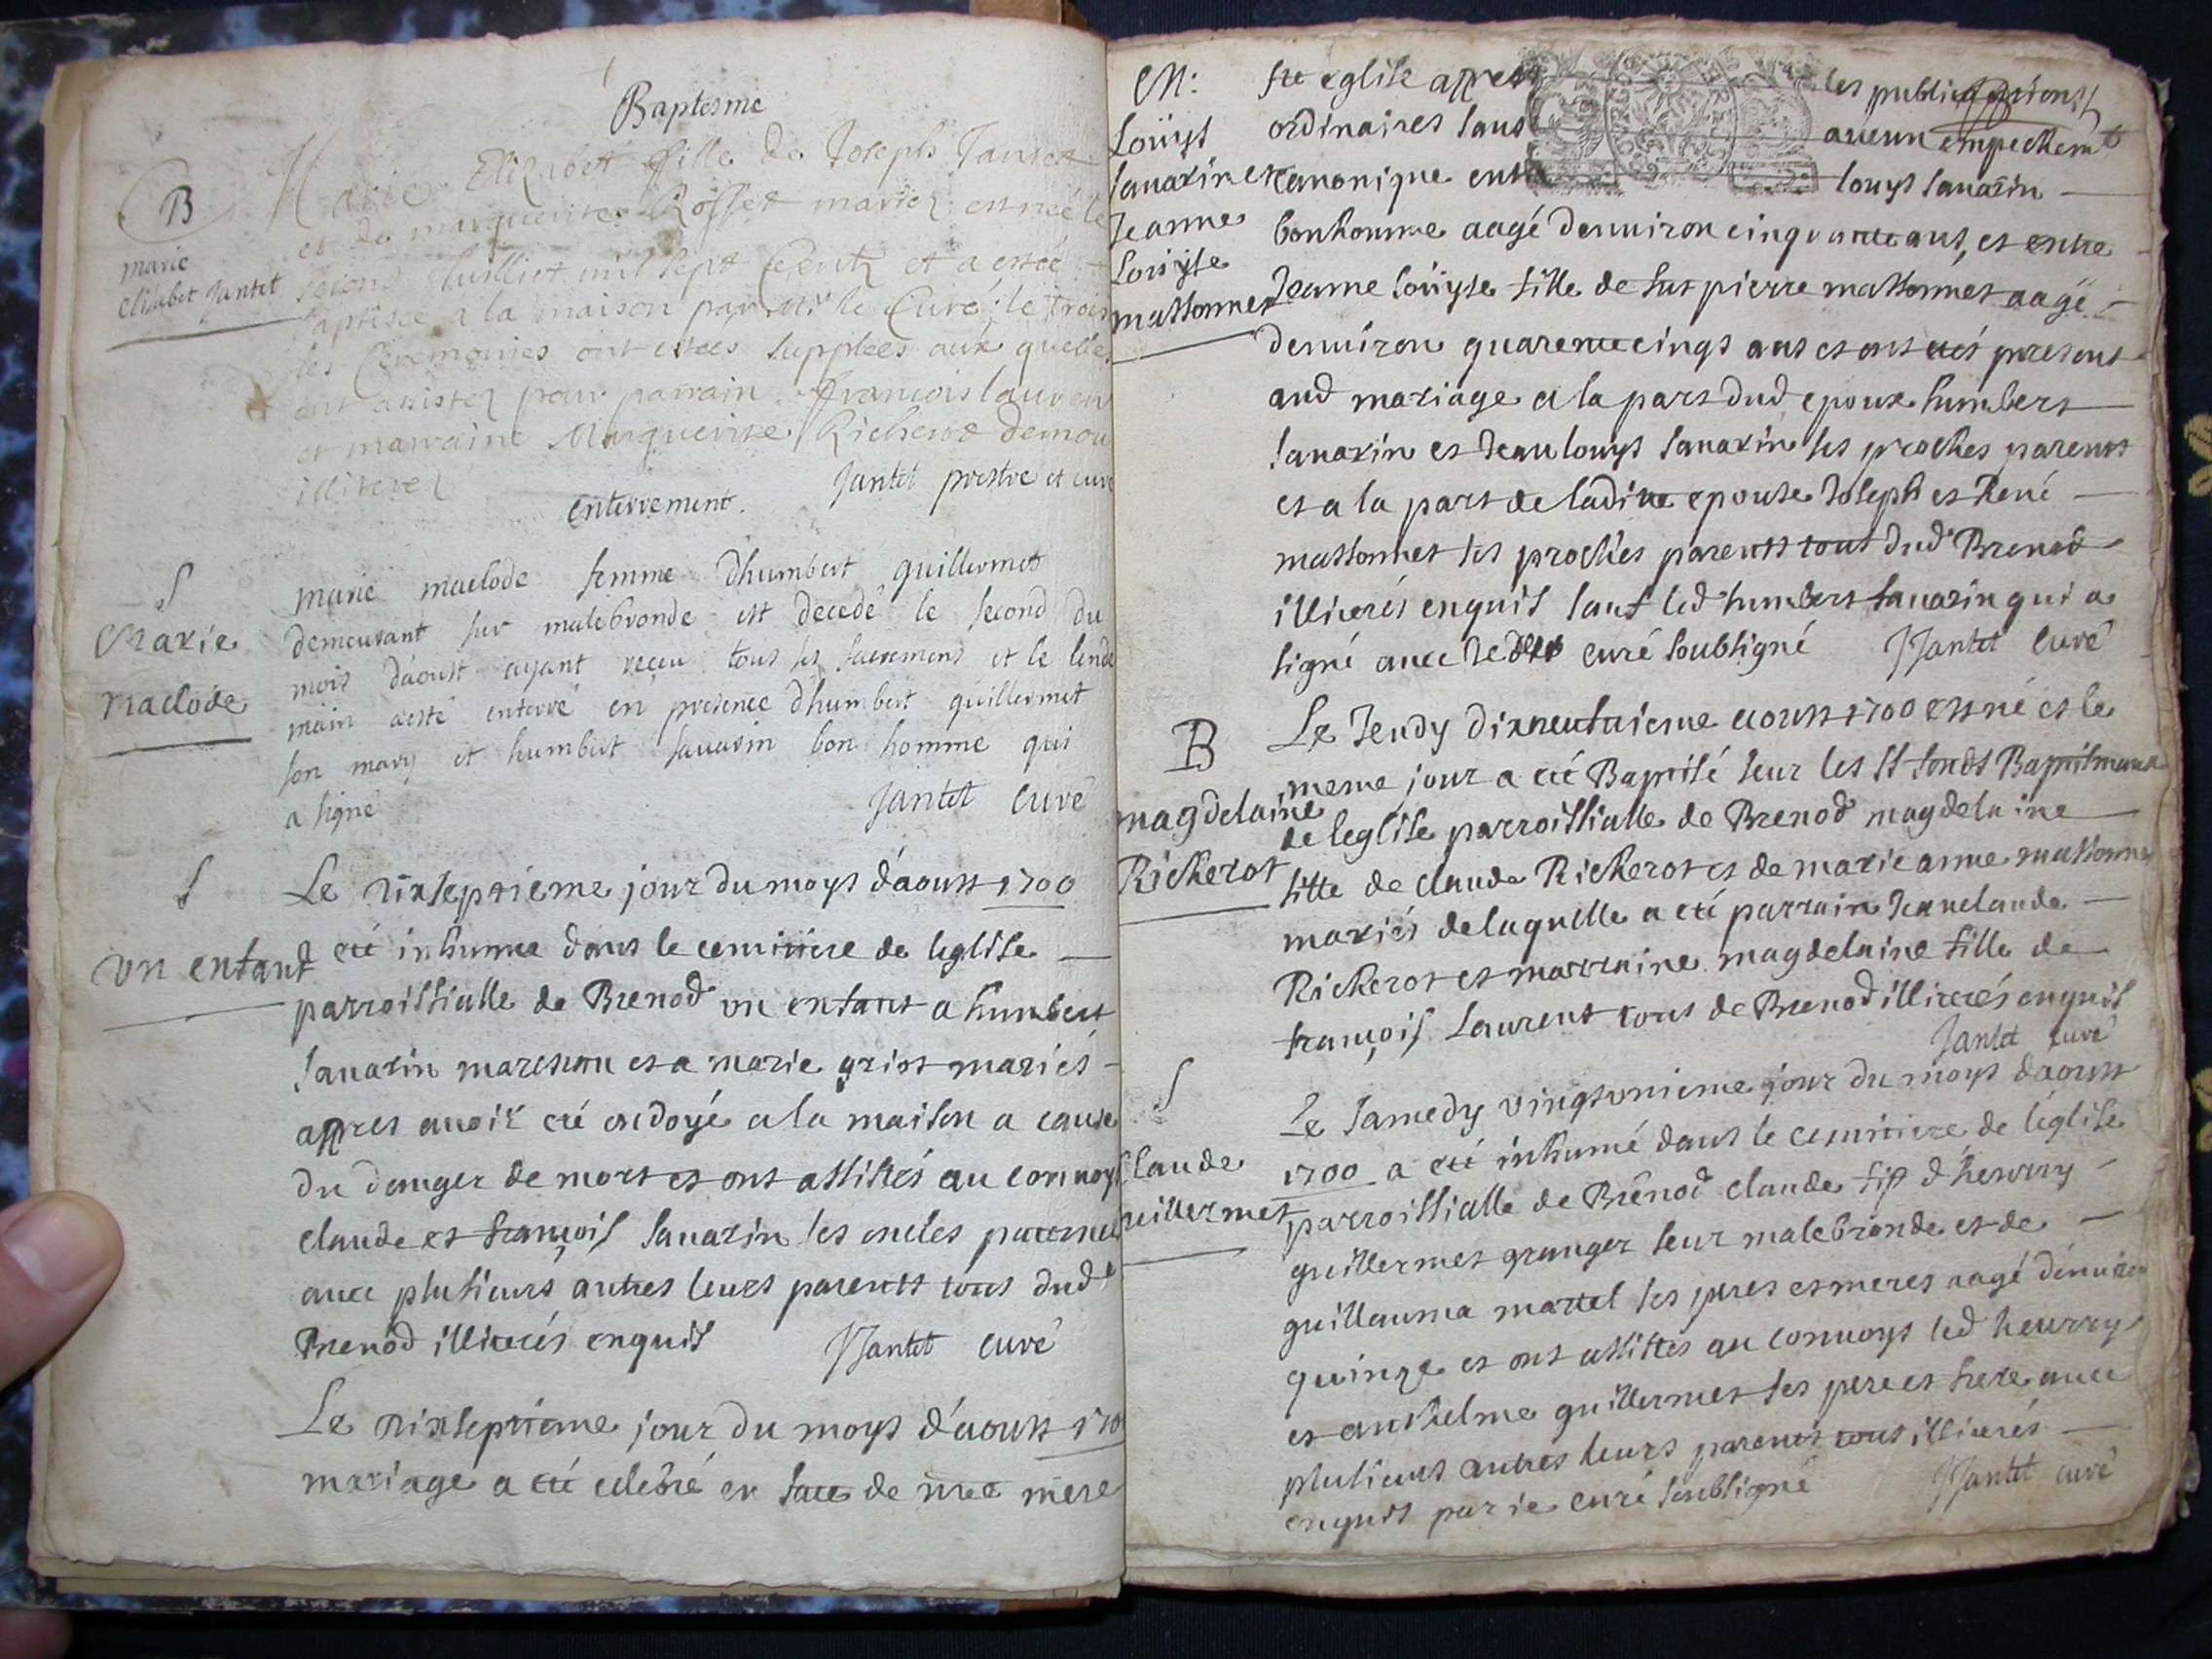 Baptesme
B
marie
elisabet Jantet
Marie Elizabet fille de Joseph Jantet
et de marguerite Rosset mariez est née le
second Juilliet mil sept Centz et a estée
baptisée a la maison par Mr le Curé le trois
les Ceremonies ont estées supplées aux quelles
ont assistez pour parrain francois lauren
et marraine Marguerite Richerot demou
illiterez
Jantet prestre et curé
enterrement.
S
Marie
maclode
marie maclode femme dhumbert guillermet
demeurant sur malebronde est decedé le second du
mois d'aoust ayant receu tous ses sacrements et le lende
main aesté enterré en presence dhumbert guillermet
son mary et humbert sauarin bon homme qui
a signé
Jantet curé
S
un enfant
Le dixseptieme jour du moys d'aoust 1700
a eté inhumé dans le cemitiere de leglise
parroissialle de Brenod un enfant a humbert
Sauarin marchan et a marie griot mariés
appres auoir eté ondoyé a la maison a cause
du danger de mort et ont assistés au conuoy
claude et françois sauarin ses oncles paternels
auec plusieurs autres leurs parents tous dud
Brenod illiterés enquis
JJantet curé
Le dixseptieme jour du moys d'aoust 170
mariage a eté celebré en face de nre mere
M:
Loüys
sauarin et
Jeanne
Loüyse
massonnet
ste eglise appres les publications
ordinaires sans aucun empechemt
canonique entre louys sauarin
bonhomme aagé denuiron cinquante ans, et entre
Jeanne loüyse fille de fut pierre massonnet aagé
denuiron quarente cinqs ans et ont etés present
aud mariage a la part dud epoux humbert
sauarin et Jean louys sauarin ses proches parents
et a la part de ladite epouse Joseph et René
massonnet ses proches parents tous dud Brenod
illiterés enquis sauf led humbert sauarin qui a
signé auec curé soubsigné
JJantet curé
B
magdelaine
Richerot
Le Jeudy dixneufuieme aoust 1700 est né et le
meme jour a eté Baptisé seur les St fonds Baptismaux
de leglise parroissialle de Brenod magdelaine
fille de claude Richerot et de marie anne massonnet
mariés delaquelle a eté parrain Jean claude
Richerot et marraine magdelaine fille de
françois Laurent tous de Brenod illiterés enquis
Jantet curé
S
Claude
guillermet
Le samedy vingtunieme jour du moys daoust
1700 a eté inhumé dans le cemitiere de leglise
parroissialle de Brenod claude fils d'henrry
guillermet granger seur malebronde et de
guillauma martel ses peres et meres aagé denuiron
quinze et ont assistés au conuoys led henrry
et anthelme guillermet ses pere et frere auec
plusieurs autres leurs parents tous illiterés
enquis par ie curé soubsigné
JJantet curé